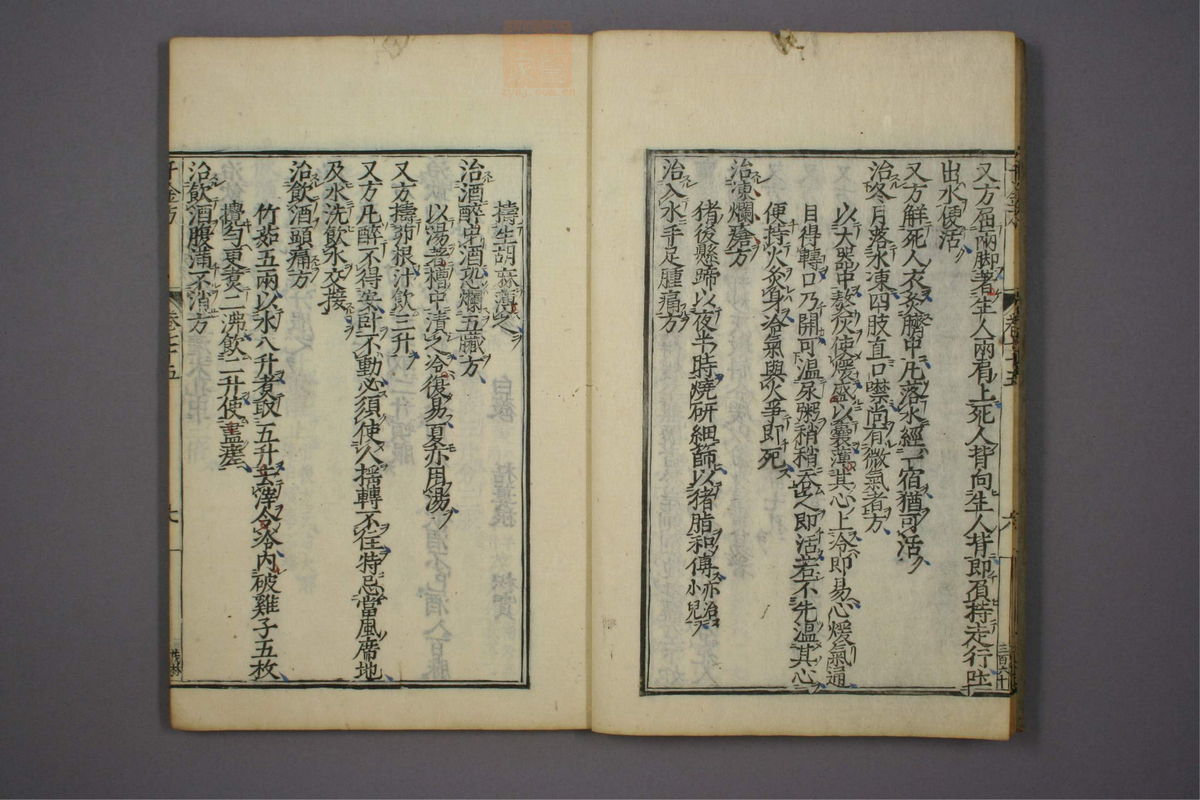 又方屈兩脚著生人兩肩上死人背向生人背即負持走行吐
出水便活
又方解死人衣灸臍中凡落水經一宿猶可活
治冬月落水凍四肢直口噤尚有微氣者方
以大器中熬灰使煖盛以囊薄其心上冷即易心煖氣通
目得轉口乃開可溫尿粥稍稍吞之即活若不先溫其心
便持火灸身冷氣與火爭即死
治凍爛瘡方
猪後懸蹄以夜半時燒研細篩以猪脂和傅亦治小兒
治入水手足腫痛方
擣生胡麻薄之
治酒醉中酒恐爛五臟方
以湯著槽中漬之冷復易夏亦用湯
又方擣茆根汁飲三升
又方凡醉不得安臥不動必須使人搖轉不住特忌當風席地
及水洗飲水交接
治飲酒頭痛方
竹茹五兩以水八升煮取五升去滓令冷內破雞子五枚
攪勻更煑二沸飲二升使盡差
治飲酒腹滿不消方
千金方
卷二十五